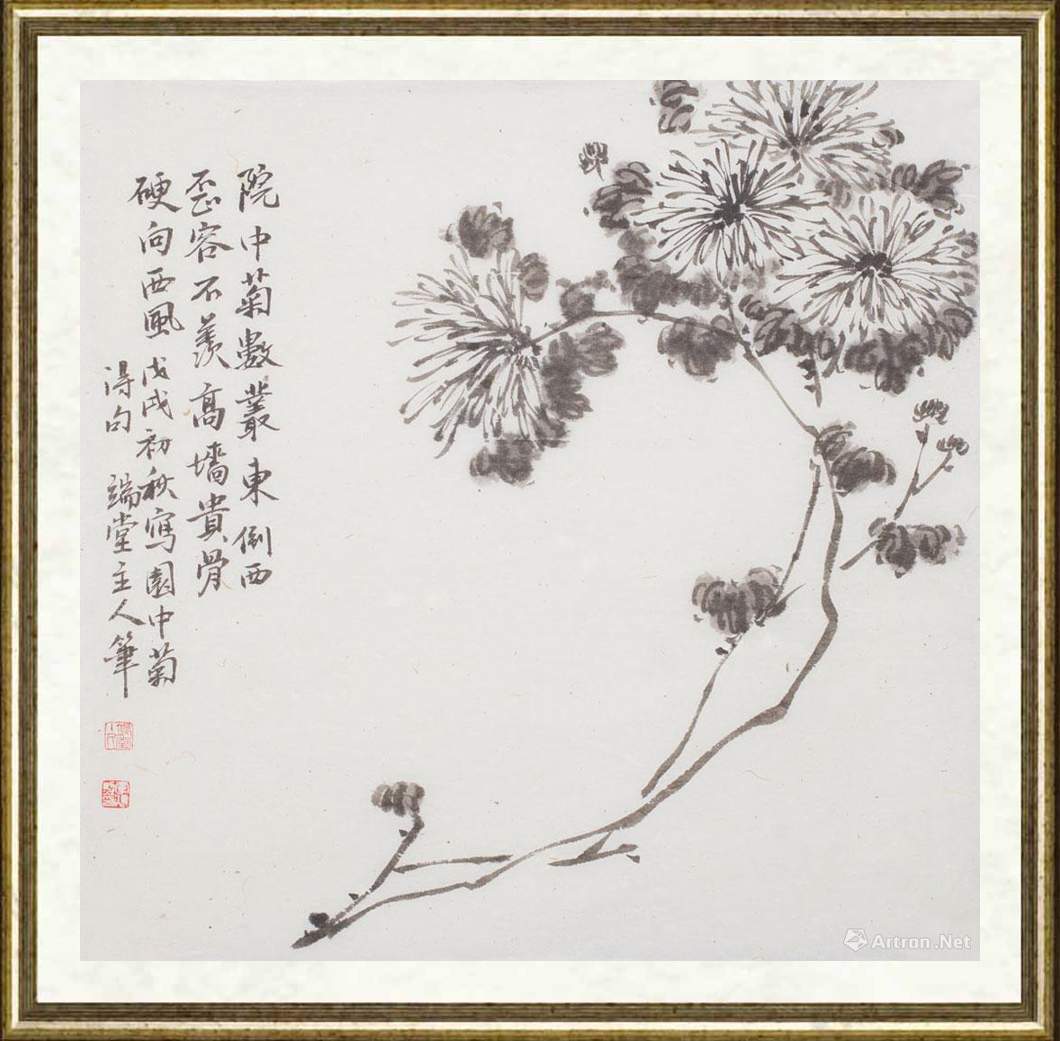 院中菊數叢東倒西
歪容不羨高墻貴骨
硬向西風
戊戌初秋寫園中菊
得句 端堂主人筆
Artron.Net